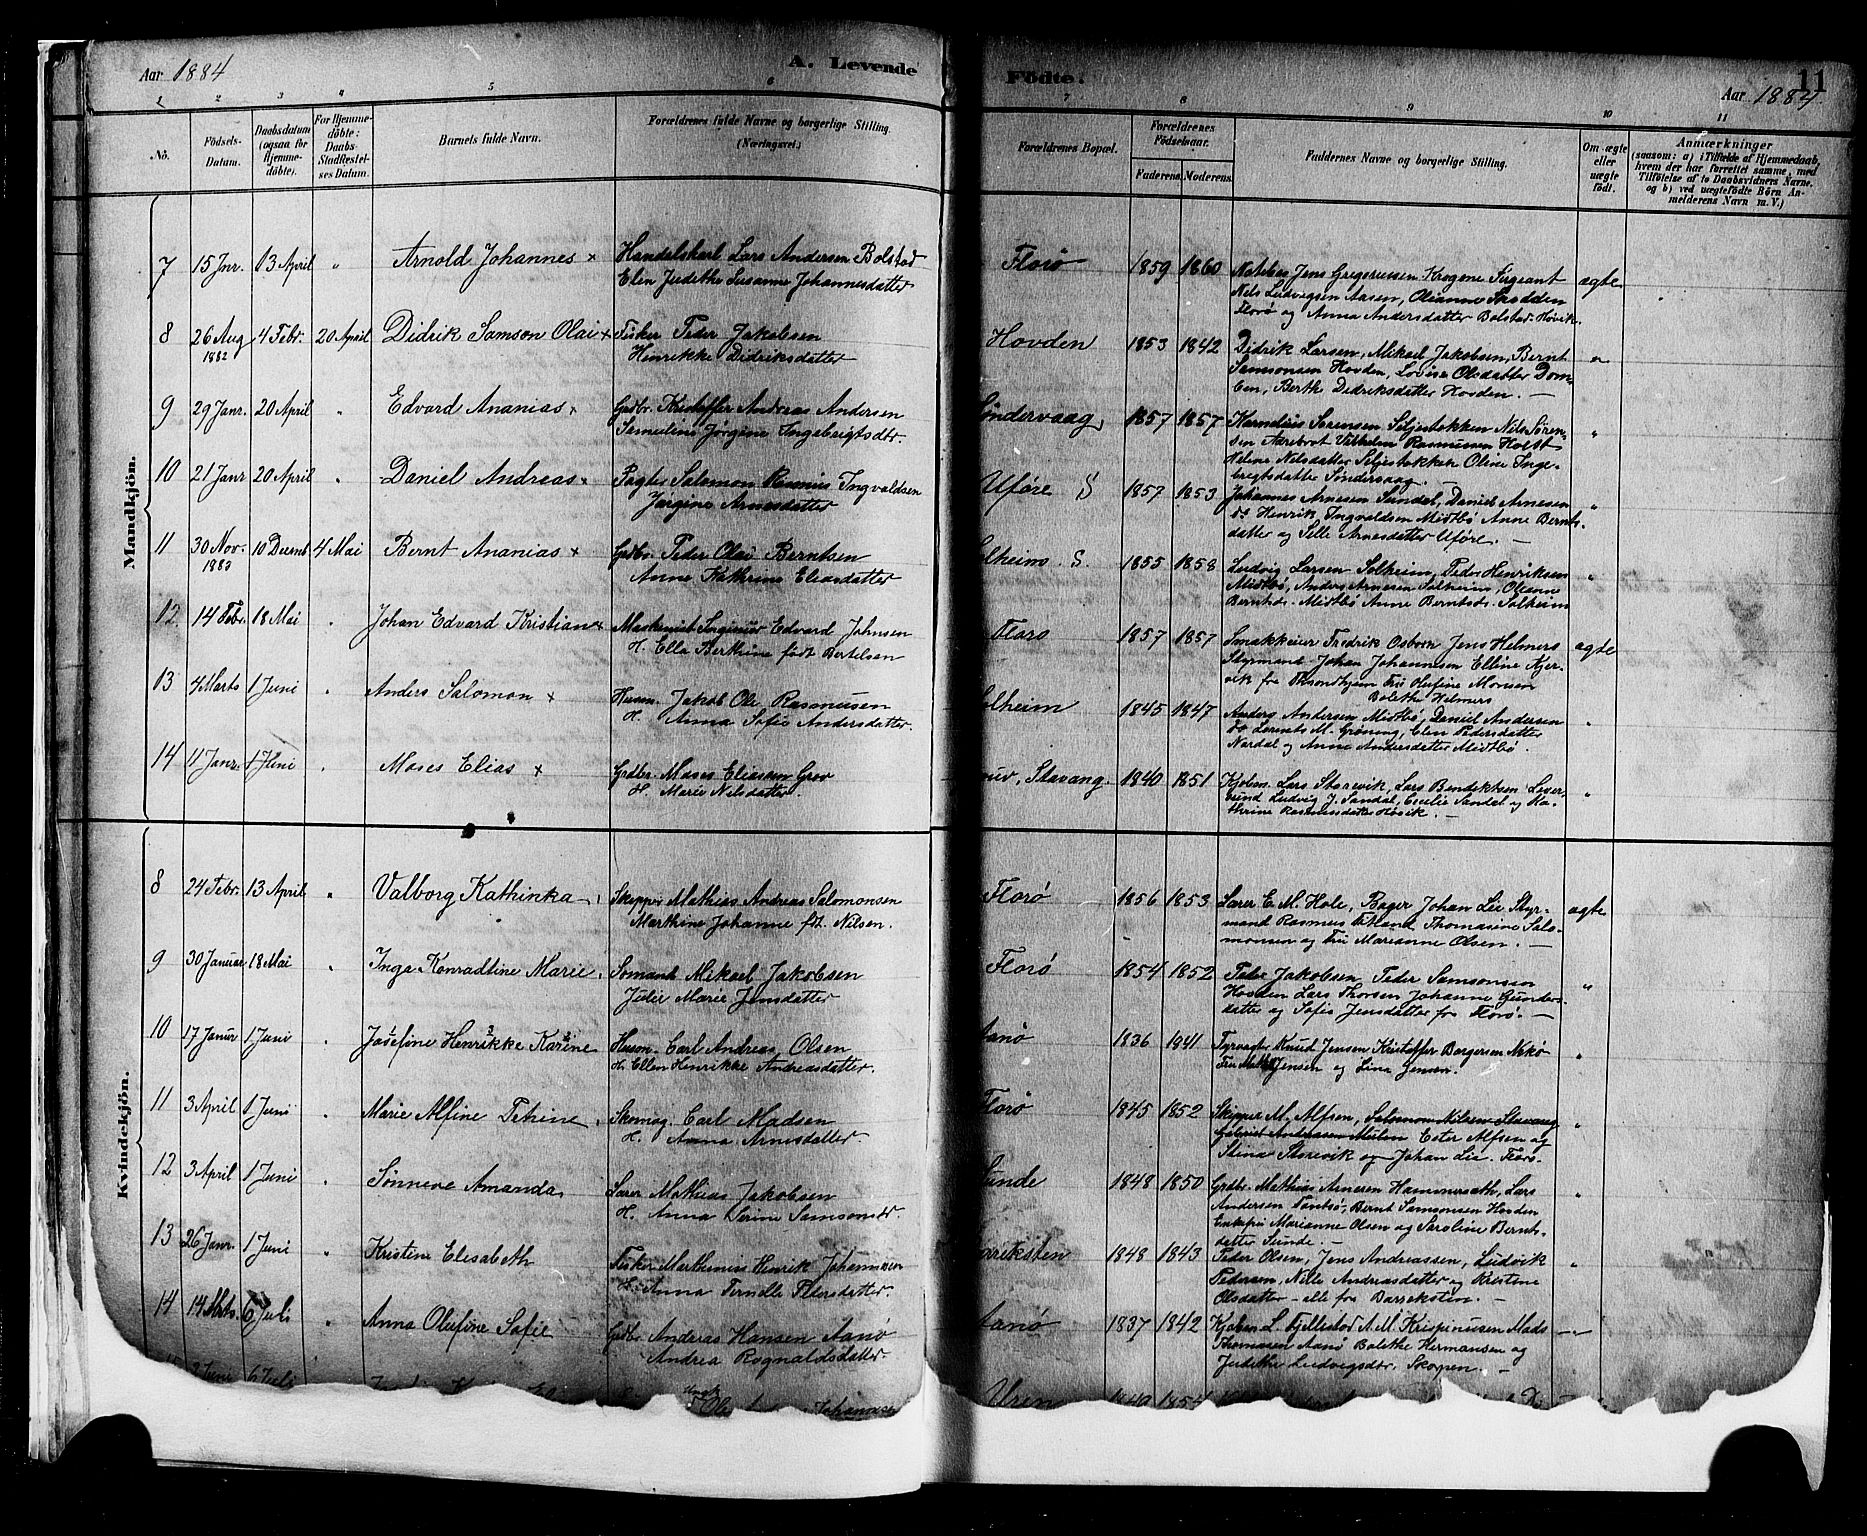 Aar 1884
A. Levende
Födte.
11
Aar 1884
1 2 3 4 5 6 7 8 9 10 11
No.
Födsels-
Datum.
Daabsdatum
(ogsaa for
Hjemme-
döbte).
For Hjemme-
döbte:
Daabs-
Stadfestel-
ses Datum.
Barnets fulde Navn.
Forældrenes fulde Navne og borgerlige Stilling.
(Næringsvei.)
Forældrenes Bopæl.
Forældrenes
Födselsaar.
Faderens. Moderens.
Faddernes Navne og borgerlige Stilling.
Om ægte
eller
uægte
födt.
Anmærkninger
(saasom: a) i Tilfælde af Hjemmedaab,
hvem der har forrettet samme, med
Tilföielse af to Daabsvidners Navne,
og b) ved uægtefödte Börn An-
melderens Navn m. V.)
Mandkjön.
7 15 Jnr. 13 April " Arnold Johannes x Handelskarl Lars Andersen Bolstad
Elen Judethe Susanne Johannesdatter
Florø 1859 1860 Jens Gregeriussen Krogene Sergeant ægte
Nils Ludvigsen Aasen, Olianne Skodden
Florø og Anna Andersdatter Bolstad. Høvik.
8 26 Aug 4 Febr. 20 April Didrik Samson Olai x Fisker Peder Jakobsen
1882
Henrikke Didriksdatter
Hovden 1853 1842 Didrik Larsen, Mikael Jakobsen, Bernt "
Samsonsen Hovden, Lovise Olsdatter Dom-
ben, Berthe Didriksdatter Hovden. —
9 29 Janr. 20 April " Edvard Ananias x Grdbr. Kristoffer Andreas Andersen
Samueline Jørgine Ingebrigtsdtr.
Søndervaag 1857 1857 Kornelius Sørensen Seljestokken Nils Søren- "
sen Aarebrot Vilhelm Rasmussen Holst
Helene Nilsdatter Seljestokken Oline Inge-
brigtsdatter Søndervaag. —
10 21 Janr 20 April " Daniel Andreas x Pagter Salomon Rasmus Ingvaldsen
Jørgine Arnesdatter
Uføre S 1857 1853 Johannes Arnesen Sundal, Daniel Arnesen "
do Henrik Ingvaldsen Midtbø Anne Bernts-
datter og Sille Arnesdatter Uføre. —
11 30 Nov. 10 Decmb 4 Mai Bernt Ananias x Grdbr. Peder Olai Berntsen
1883
Anne Kathrine Eliasdatter
olheim. S. 1855 1858 Ludvig Larsen Solheim, Peder Henriksen "
Midtbø, Anders Arnesen Solheim, Oleanne
Berntsd. Midtbø Anne Berntsd. Solheim
12 14 Febr. 18 Mai " Johan Edvard Kristian x Maskinist Edvard Johnsen
H. Ella Berthine født Bertelsen
Florø 1857 1857 Smakkeier Fredrik Osborn Jens Helmers ægte
Styrmand Johan Johannesen Elline Kjer-
vik fra Throndhjem Fru Olufine Monsen
Bolethe Helmers
13 4 Marts 1 Juni " Anders Salomon x Husm. Jakob Ole Rasmusen
H. Anna Sofie Andersdatter.
olheim 1845 1847 Anders Andersen Midtbø, Daniel Andersen "
do Lorents M. Grøning, Elen Pedersdatter
Nordal og Anne Andersdatter Midtbø.
14 11 Janr. 1 Juni " Moses Elias x Grdbr. Moses Eliassen Grov
H. Marie Nilsdatter.
Stavang. 1840 1851 Kjøbm. Lars Storevik, Lars Bendiktsen Lever- "
sund Ludvig J. Sandal, Cecilie Sandal og Ka-
thrine Rasmusdatter Høvik. —
Kvindekjön.
8 24 Febr. 13 April " Valborg Kathinka Skipper Mathias Andreas Salomonsen
Marthine Johanne fdt. Nilsen.
Florø 1856 1853 Lærer E. M. Hole, Bager Johan Lie Styr- ægte
mand Rasmus Thomasine Salo-
monsen og Fru Marianne Olsen. —
9 30 Januar 18 Mai " Inga Konradtine Marie Sømand Mikael Jakobsen
Julie Marie Jensdatter
Florø 1854 1852 Peder Jakobsen, Peder Samsonsen "
Hovden Lars Thorsen Johanne Gunders-
datter og Sofie Jensdatter fra Florø. —
10 17 Janur 1 Juni " Josefine Henrikke Karine Husm. Carl Andreas Olsen
H. Ellen Henrikke Andreasdatter.
anø 1836 1841 Fyrvogter Knud Jensen Kristoffer Borgersen Nekø "
Fru Jensen og Lina Jensen.
11 3 April 1 Juni " Marie Alfine Petrine Skomag. Carl Madsen
H. Anna Arnesdatter
Florø 1845 1852 Skipper M. Alfsen, Salomon Nilsen Stavang "
Gabriel Andreassen Mulen Ester Alfsen og
Stina Storevik og Johan Lie. Florø.
12 3 April 1 Juni " Sønneve Amanda Lærer Mathias Jakobsen
H. Anna Serine Samsonsdr
Sunde 1848 1850 Grdbr. Mathias Arnesen Hammerseth, Lars "
Andersen Bernt Samsonsen Hovden
Enkefru Marianne Olsen og Saroline Bernts-
datter Sunde. —
13 26 Janr. 1 Juni " Kristine Elisabeth Fisker Marthinus Henrik Johannesen
H. Anna Pernille Pedersdatter.
arreksten 1848 1843 Peder Olsen, Jens Andreassen, Ludvik "
Pedersen, Nille Andreasdatter og Kristine
Olsdatter — alle fra Barreksten. —
14 14 Marts 6 Juli " Anna Olufine Sofie Grdbr. Andreas Hansen Aanø
Andrea Rognaldsdatter.
anø 1837 1842 Kjøbm. L. Fjellestad A. M. Krispinusen Mads — " —
Thomasen Aanø Bolethe Hermansen og
Judithe Ludvigsdtr. Skorpen. —
2 Juni 6 Juli
Ole Johannesen
Uren 1849 1854